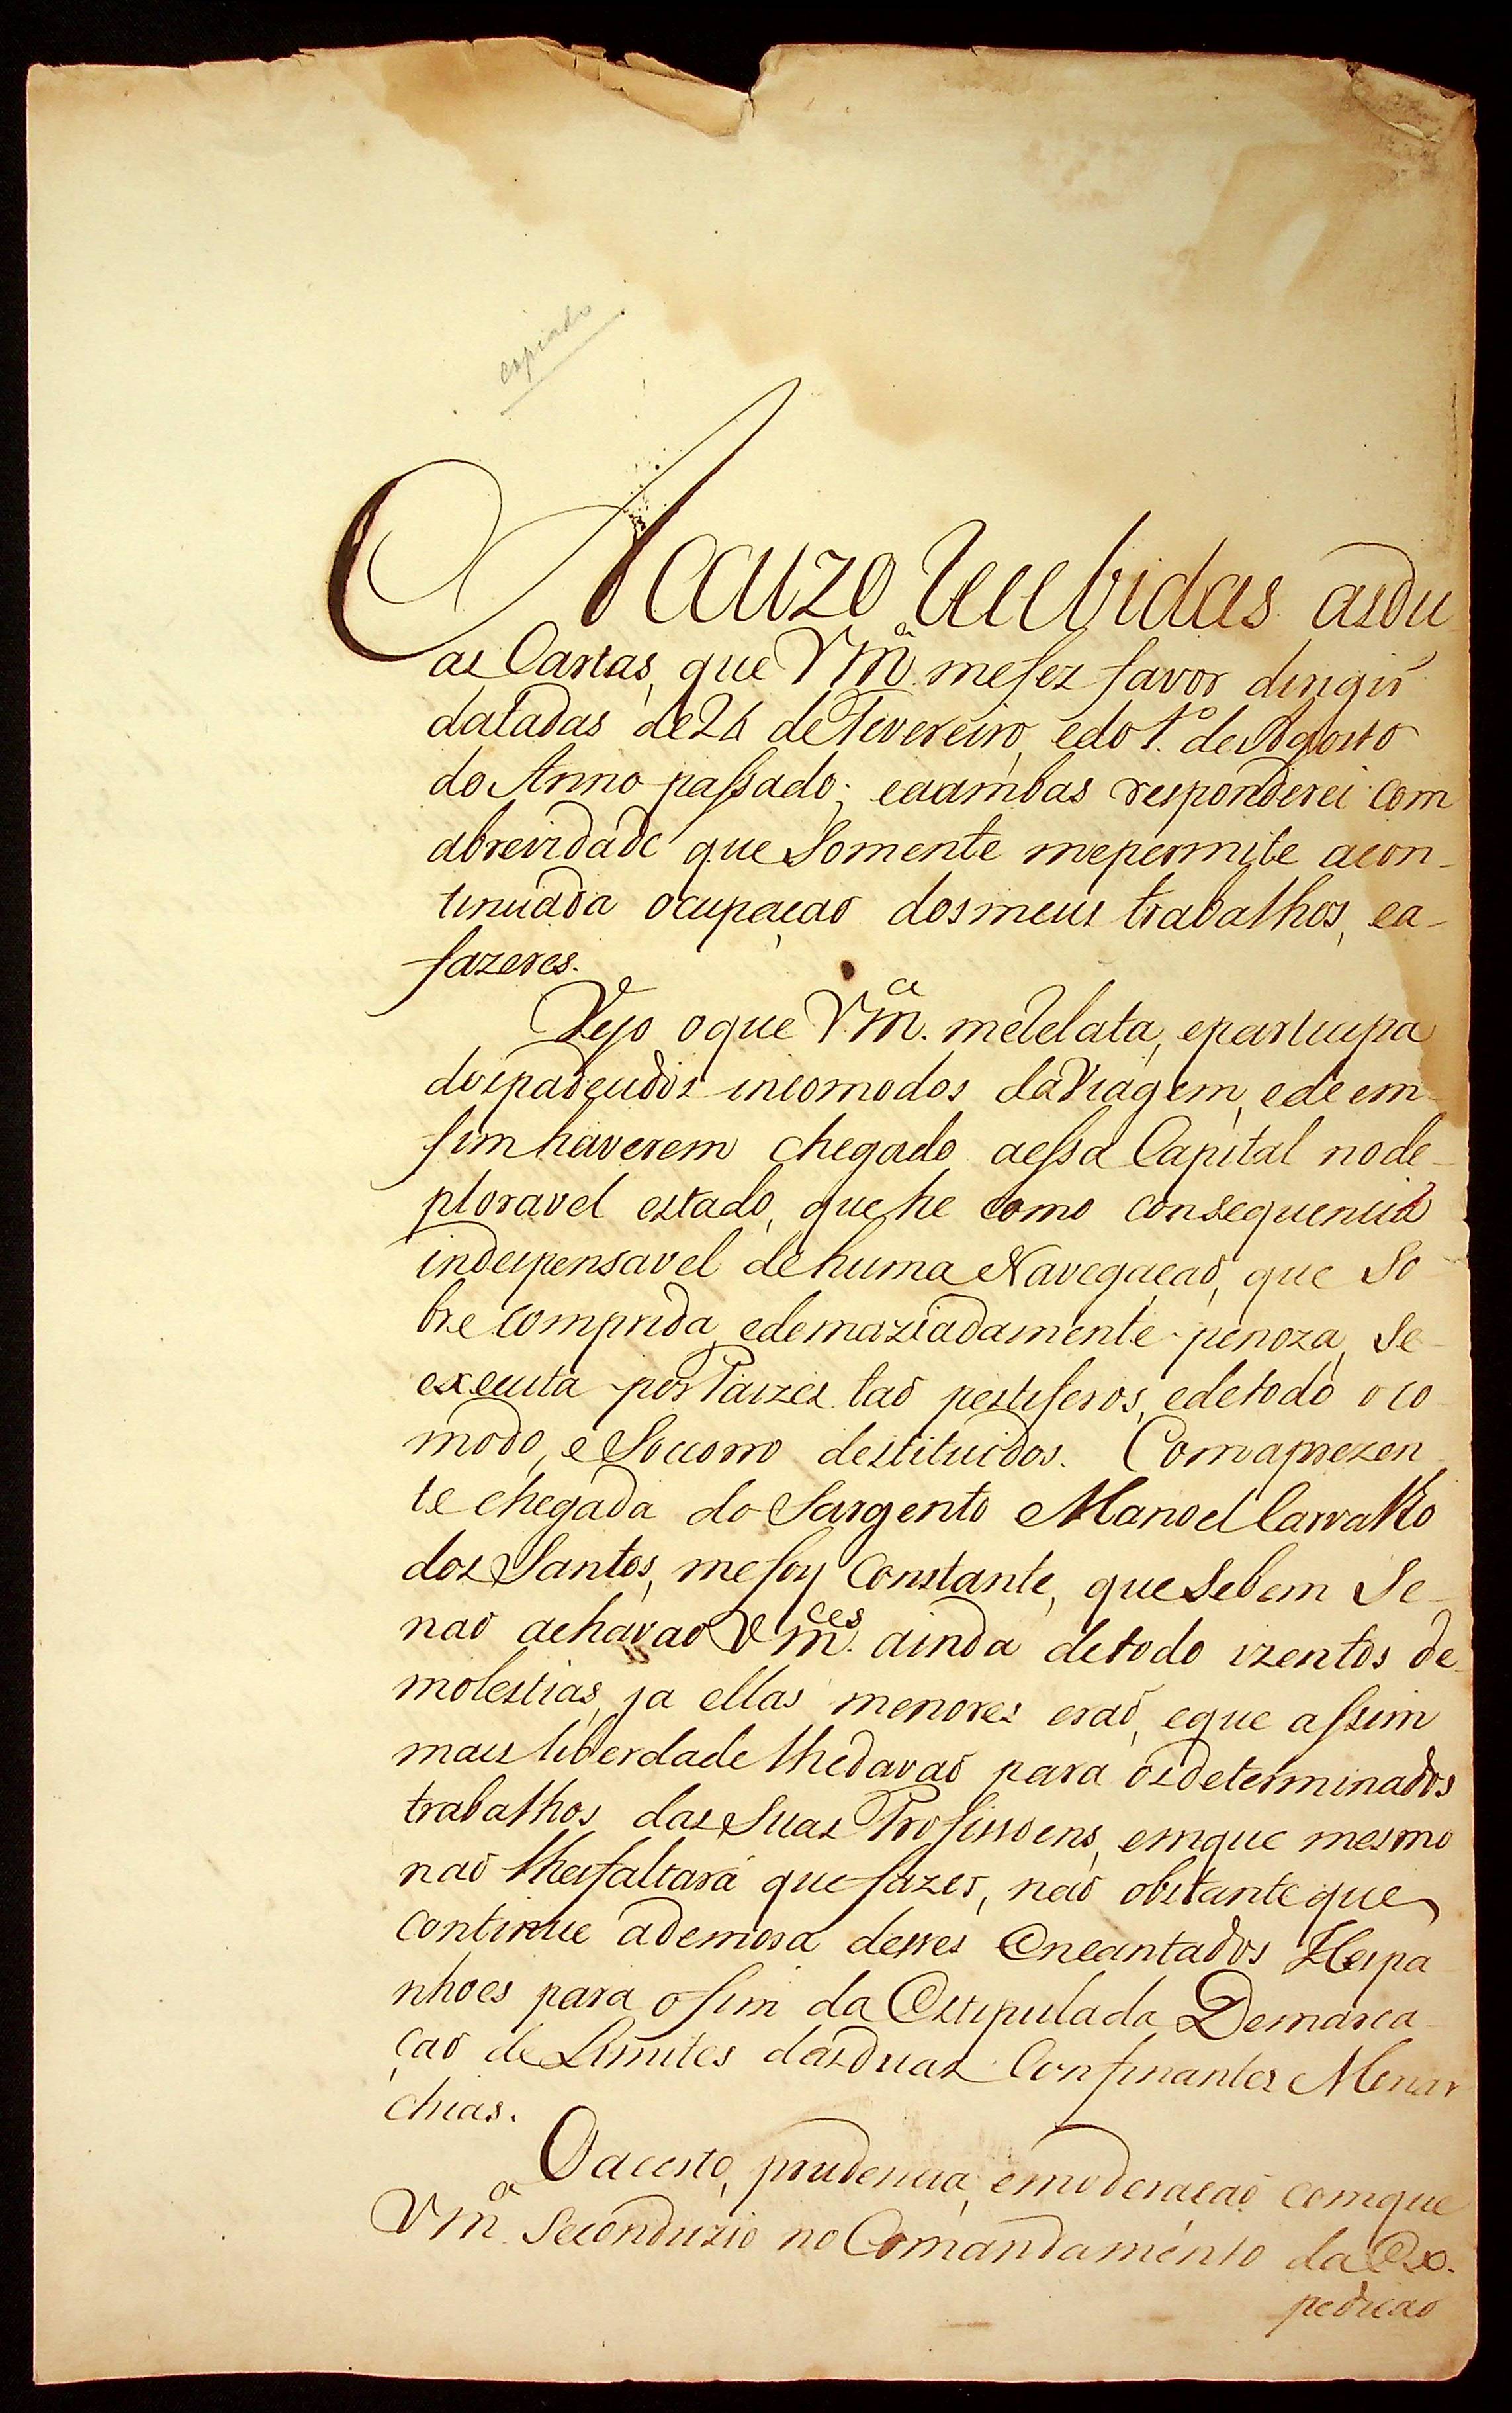 copiado
Acuzo recebidas as du
as Cartas, que Vm.ce me fez favor dirigir
datadas de 24 de Fevereiro, e do 1.º de Agosto
do Anno passado; e a ambas responderei com
a brevidade que Somente me permite a con-
tinuada ocupação dos meus trabalhos, e a-
fazeres.
Vejo o que Vm.ce me relata, e participa
dos padecidos incomodos da Viagem, e de em
fim haverem chegado a essa Capital no de-
ploravel estado, que he como consequencia
indespensavel de huma Navegação, que So
bre comprida, e demaziadamente penoza, Se-
executa por Paizes tão pestiferos, e de todo o co
modo, e Socorro destituidos. Com a prezen
te chegada do Sargento Manoel Carvalho
dos Santos, me foy Constante, que Se bem Se-
não achavão Vm.ces ainda de todo izentos de
molestias, ja ellas menores erão, e que assim
mais liberdade lhe davão para os determinados
trabalhos das Suas Profissoens, em que mesmo
não lhes faltará que fazer, não obstante que
continue a demora desses Encantados Hespa
nhoes para o fim da Estipulada Demarca-
ção de Limites das duas Confinantes Monar
chias.
O acerto, prudencia, e moderação com que
Vm.ce Se conduzio no Comandamento da Ex-
pedição